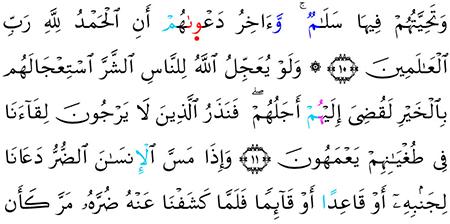 وَتَحِيَّتُهُمْ فِيهَا سَلَٰمٌ ۚ وَءَاخِرُ دَعْوَىٰهُمْ أَنِ ٱلْحَمْدُ لِلَّهِ رَبِّ
ٱلْعَٰلَمِينَ ۝١٠ ۞ وَلَوْ يُعَجِّلُ ٱللَّهُ لِلنَّاسِ ٱلشَّرَّ ٱسْتِعْجَالَهُم
بِٱلْخَيْرِ لَقُضِىَ إِلَيْهُمْ أَجَلُهُمْ ۖ فَنَذَرُ ٱلَّذِينَ لَا يَرْجُونَ لِقَآءَنَا
فِى طُغْيَٰنِهِمْ يَعْمَهُونَ ۝١١ وَإِذَا مَسَّ ٱلْإِنسَٰنَ ٱلضُّرُّ دَعَانَا
لِجَنۢبِهِۦٓ أَوْ قَاعِدًا أَوْ قَآئِمًا فَلَمَّا كَشَفْنَا عَنْهُ ضُرَّهُۥ مَرَّ كَأَن